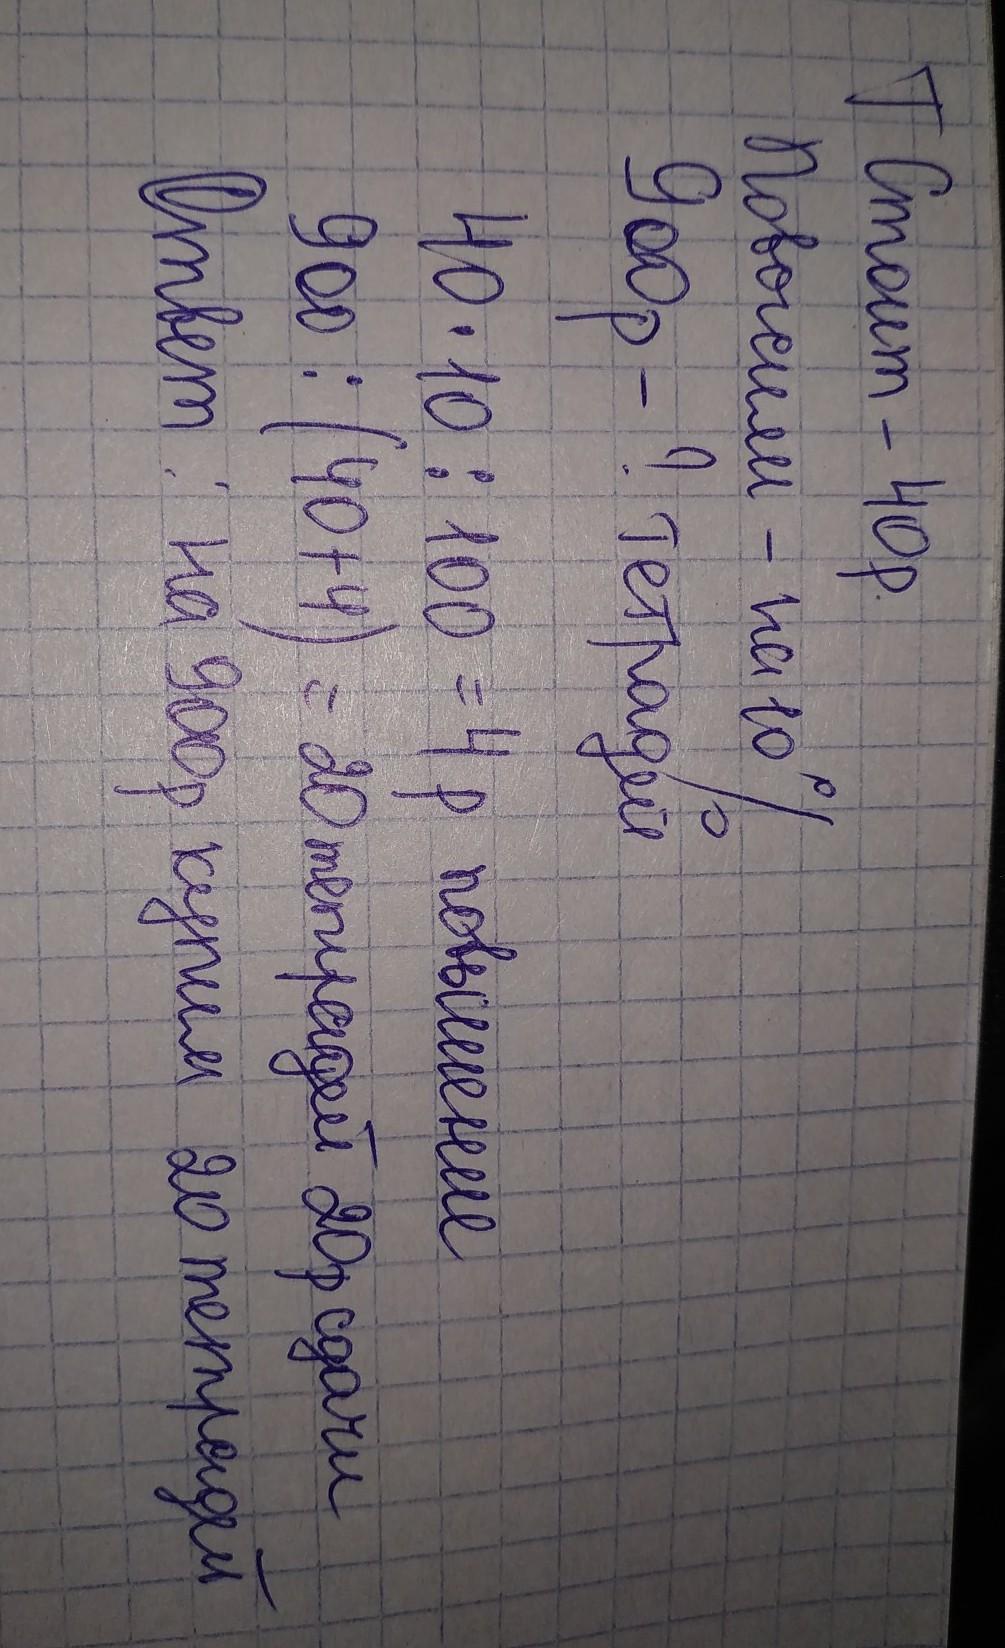 Т Стоит - 40р.
Повысили - на 10%
900р - ? тетрадей
40 · 10 : 100 = 4р повышение
900 : (40+4) = 20 тетрадей 20р сдачи
Ответ : на 900р купим 20 тетрадей